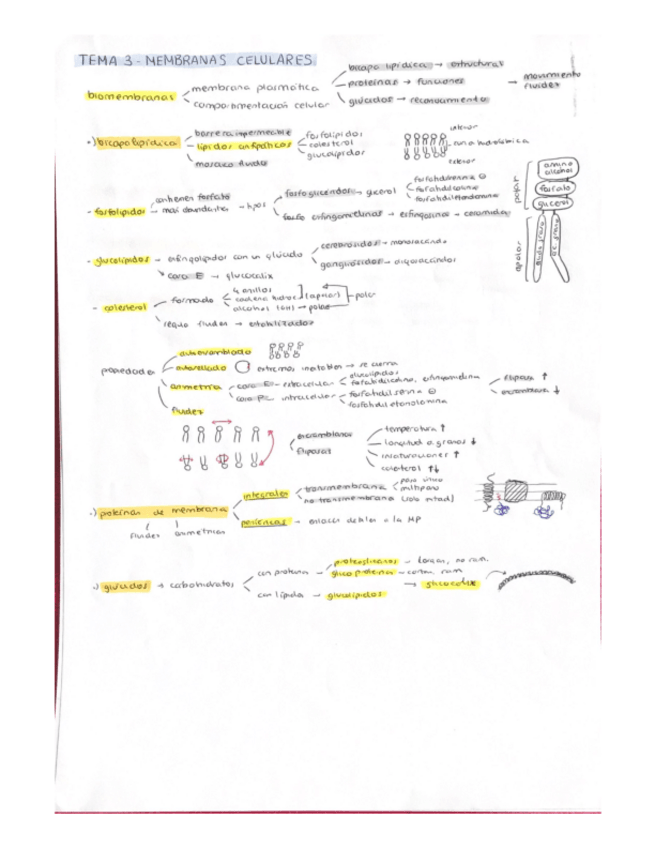 TEMA 3 - MEMBRANAS CELULARES
biomembranas
membrana plasmática
compartimentación celular
bicapa lipídica → estructuras
proteínas → funciones
glúcidos → reconocimiento
→ movimiento fluidez
·) bicapa lipídica
barrera impermeable
lípidos anfipáticos
mosaico fluido
fosfolípidos
colesterol
glucolípidos
interior
exterior
- fosfolípidos
contienen fosfato
más abundantes → tipos
fosfoglicéridos → glicerol
fosfatidilserina ⊖
fosfatidilcolina
fosfatidiletanolamina
fosfo esfingomielinas → esfingosina → ceramidas
polar
apolar
amino alcohol
fosfato
glicerol
- glucolípidos → esfingolípidos con un glúcido
cerebrósidos → monosacárido
gangliósidos → oligosacáridos
cara E → glucocálix
- colesterol
formado
4 anillos
cadena hidroc. (apolar)
alcohol (OH) → polar
regula fluidez → estabilizador
propiedades
autoensamblado
autosellado
extremos inestables → se cierra
asimetría
cara E → extracelular
glucolípidos
fosfatidilcolina, esfingomielina
cara PC intracelular
fosfatidil serina ⊖
fosfatidil etanolamina
flipasa ↑
escramblasa ↓
fluidez
escramblasa
flipasa
temperatura ↑
longitud a. grasos ↓
insaturaciones ↑
colesterol ↑↓
·) proteínas de membrana
fluidez
asimétricas
integrales
transmembrana
paso único
multipaso
no transmembrana (solo mitad)
periféricas → enlaces débiles a la MP
·) glúcidos → carbohidratos
con proteína
proteoglicanos → largas, no ram.
glicoproteínas → cortas, ram
→ glucocálix
con lípidos → glucolípidos